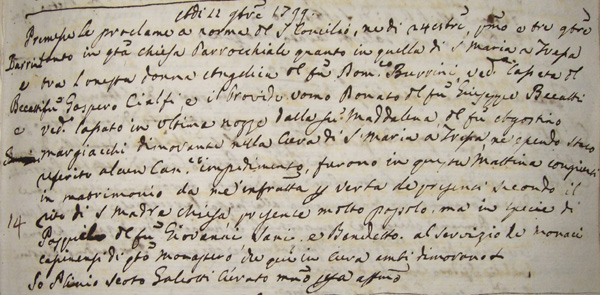 Adi 11 9bre 1799
Premesse le proclame a norma del S. Concilio, ne di 24 8tre, pmo e tre 9bre
Burrini tanto in qta chiesa Parrocchiale quanto in quella di S. Maria a
e tra l'onesta donna Angelica del fu Dom.co Burrini, ved. lasciata del
Becatti fu Gaspero Cialfi e il Provido uomo Donato del fu Giuseppe Becatti
e ved. lasciato in ultime nozze dalla fu Maddalena del fu Agostino
Margiacchi dimorante nella Cura di S. Maria a ne essendo stato
referito alcun Can.co impedimento, furono in questa Mattina congiunti
in matrimonio da me infratto verba de presenti secondo il
14 rito di S. Madre chiesa, presente molto popolo, ma in specie di
del fu Giovanni Sani, e Benedetto al servizio de monaci
casinensi di qto monastero che qui in Cura ambi dimorano
Io Scoto Galeotti Curato mano affmo